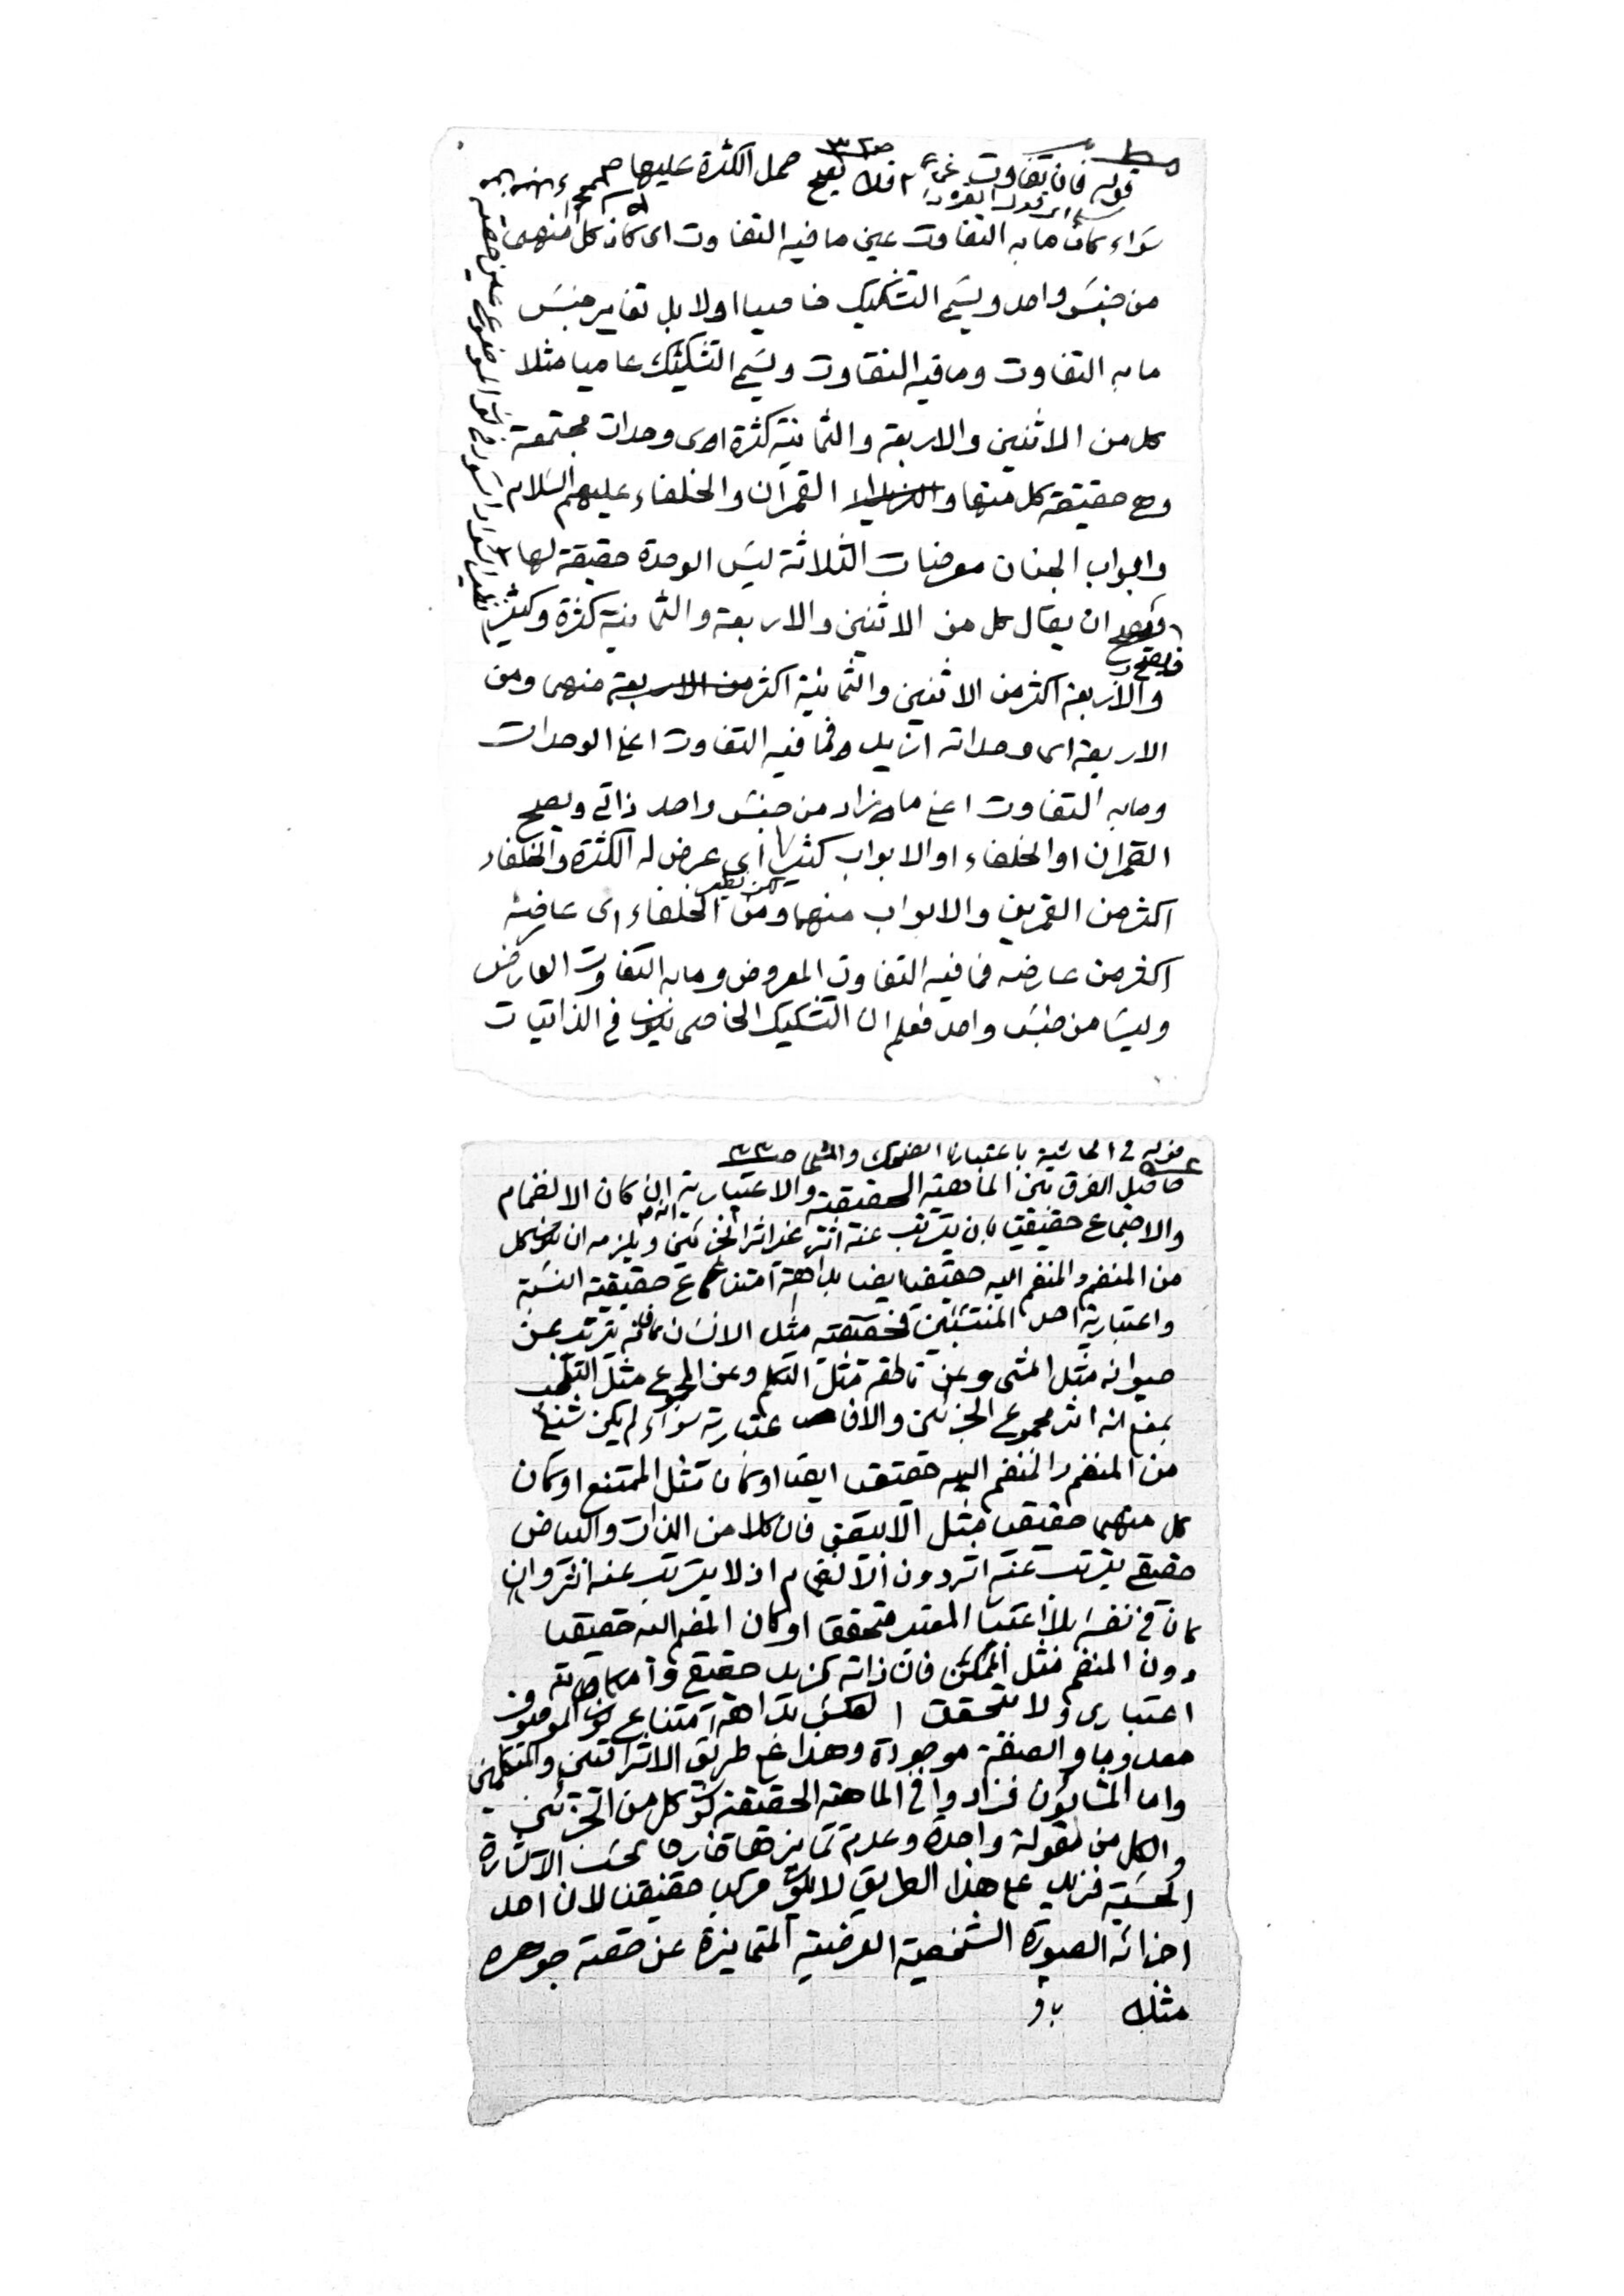 قوله فان تفاوت ص٣٢ افلا يصح حمل الكثرة عليها
سواء كان مابه التفاوت عين مافيه التفاوت اى كان كل منهما
من جنس واحد ويسمى التشكيك خاصيا اولا بل تغاير جنس
مابه التفاوت ومافيه التفاوت ويسمى التشكيك عاميا مثلا
كل من الاثنين والاربعة والثمانية كثرة اى وحدات مجتمعة
وهى حقيقة كل منها و القمران والخلفاء عليهم السلام
وابواب الجنان معروضات الثلاثة ليس الوحدة حقيقة لها
فيصح ان يقال كل من الاثنين والاربعة والثمانية كثرة وكثير
والاربعة اكثر من الاثنين والثمانية اكثر من الاربعة منهما ومن
الاربعة اى وحداته ازيد فما فيه التفاوت اعنى الوحدات
ومابه التفاوت اعنى مازاد من جنس واحد ذاتى ويصح
القمران او الخلفاء او الابواب كثير اى عرض له الكثرة والخلفاء
اكثر من القمرين والابواب منهما ومن الخلفاء اى عارضه
اكثر من عارضه فما فيه التفاوت المعروض ومابه التفاوت العارض
وليسا من جنس واحد فعلم ان التشكيك الخاصى يكون فى الذاتيات
قوله فى الحاشية باعتبار الضحك والمشى ص٣٣
حاصل الفرق بين الماهية الحقيقية والاعتبارية ان كان الانضمام
والاجتماع حقيقيا بان يترتب عنه اثر غير اثر الجزئين ويلزمه ان يكون كل
من المنضم والمنضم اليه حقيقيا ايضا بداهة امتناع حقيقية النسبة
واعتبارية احد المنتسبين فحقيقية مثل الانسان فانه يترتب عن
حيوانه مثل المشى وعن ناطقه مثل التكلم وعن المجموع مثل التعجب
بمعنى انه اثر مجموع الجزئين والا فاعتبارية سواء لم يكن شئ
من المنضم والمنضم اليه حقيقيا ايضا او كان مثل الممتنع او كان
كل منهما حقيقيا مثل الابيض فان كلا من الذات والبياض
حقيقى يترتب عنه اثر دون الانضمام اذ لا يترتب عنه اثر وان
كان فى نفسه بلا اعتبار المعتبر متحققا او كان المنضم اليه حقيقيا
دون المنضم مثل الممكن فان ذاته كزيد حقيقى وامكانه
اعتبارى ولا يتحقق العكس بداهة امتناع كون الموصوف
معدوما والصفة موجودة وهذا على طريق الاشراقيين والمتكلمين
واما المشائون فزادوا فى الماهية الحقيقية كون كل من الجزئين
والكل من مقولة واحدة وعدم تمايزها خارجا بحسب الاشارة
الحسية فزيد على هذا الطريق لا يكون مركبا حقيقيا لان احد
اجزائه الصورة الشخصية العرضية المتمايزة عن حصة جوهره
مثلا